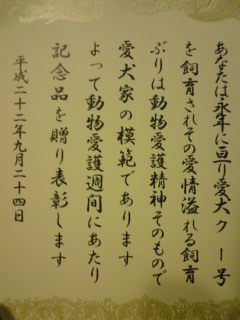 あなたは永年に亘り愛犬クー号
を飼育されその愛情溢れる飼育
ぶりは動物愛護精神そのもので
愛犬家の模範であります
よって動物愛護週間にあたり
記念品を贈り表彰します
平成二十二年九月二十四日